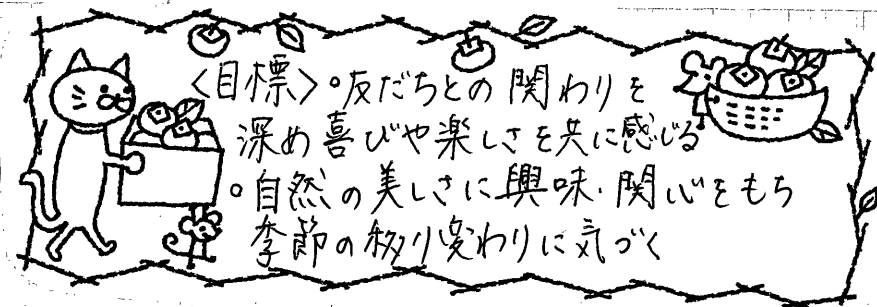 〈目標〉◦友だちとの関わりを
深め喜びや楽しさを共に感じる
◦自然の美しさに興味・関心をもち
季節の移り変わりに気づく